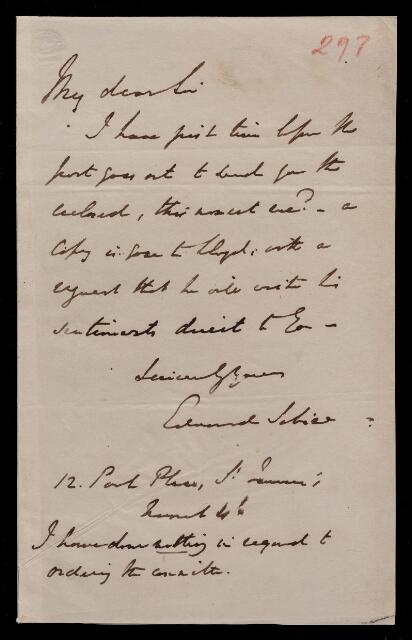 297
My dear Sir
I have just time before the
post goes out to send you the
enclosed, this moment recd. - a
copy is gone to Lloyd, with a
request that he will write his
sentiments direct to you -
Sincerely Yours
Edward Sabine
12. Park Place, St James's
March 4th
I have done nothing in regard to
ordering the committee.